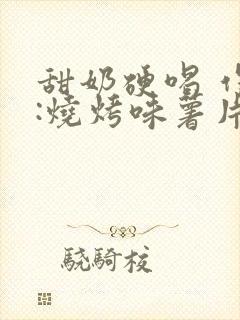 甜奶硬唱
:燒烤味薯片
驍騎校